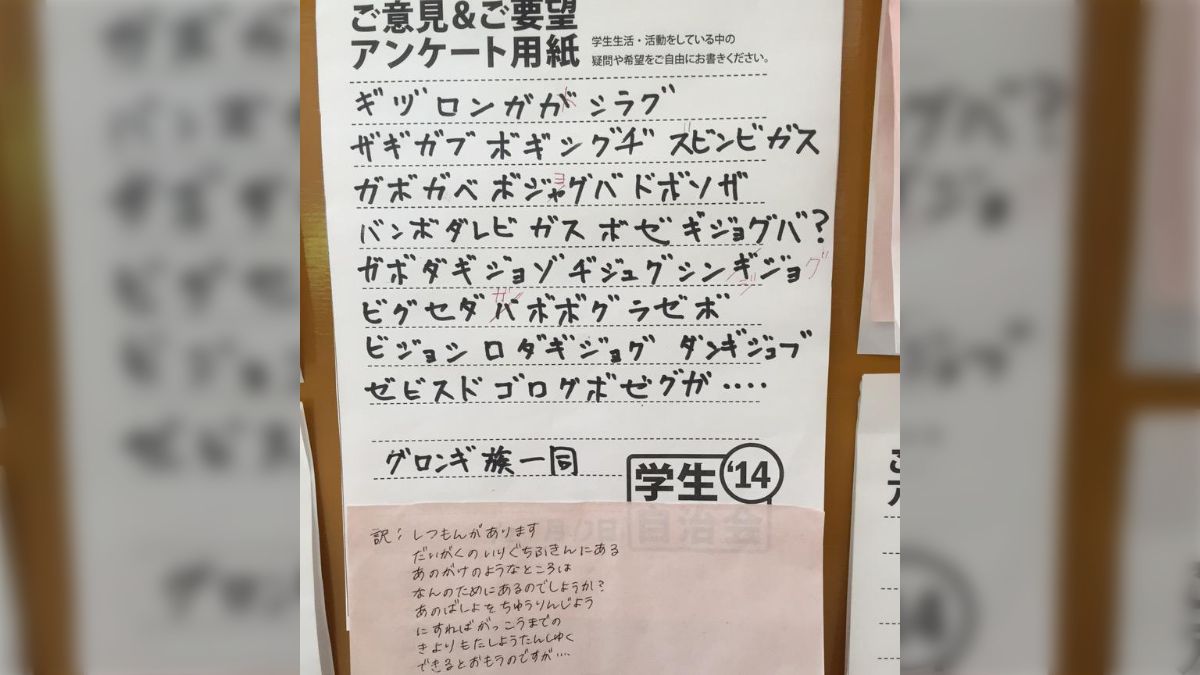 ご意見&ご要望
アンケート用紙
学生生活・活動をしている中の
疑問や希望をご自由にお書きください。
ギヅロンガガシラグ
ザギガブボギシグヂ ズビンビガス
ガボガベボジャグバドボソザ
ヨ
バンボダレビ ガス ボゼギジョグバ?
ガボダギジョゾヂジュグシンギジョグ
ジ
ビグセダバボボグラゼボ
ザ
ビジョシロダギジョグ ダンギジュブ
ゼビスドゴログボゼグガ‥‥
グロンギ族一同
学生 '14
自治会
訳:しつもんがあります
だいがくのいりぐちふきんにある
あのがけのようなところは
なんのためにあるのでしょうか?
あのばしょをちゅうりんじょう
にすればがっこうまでの
きよりもたしょうたんしゅく
できるとおもうのですが‥‥